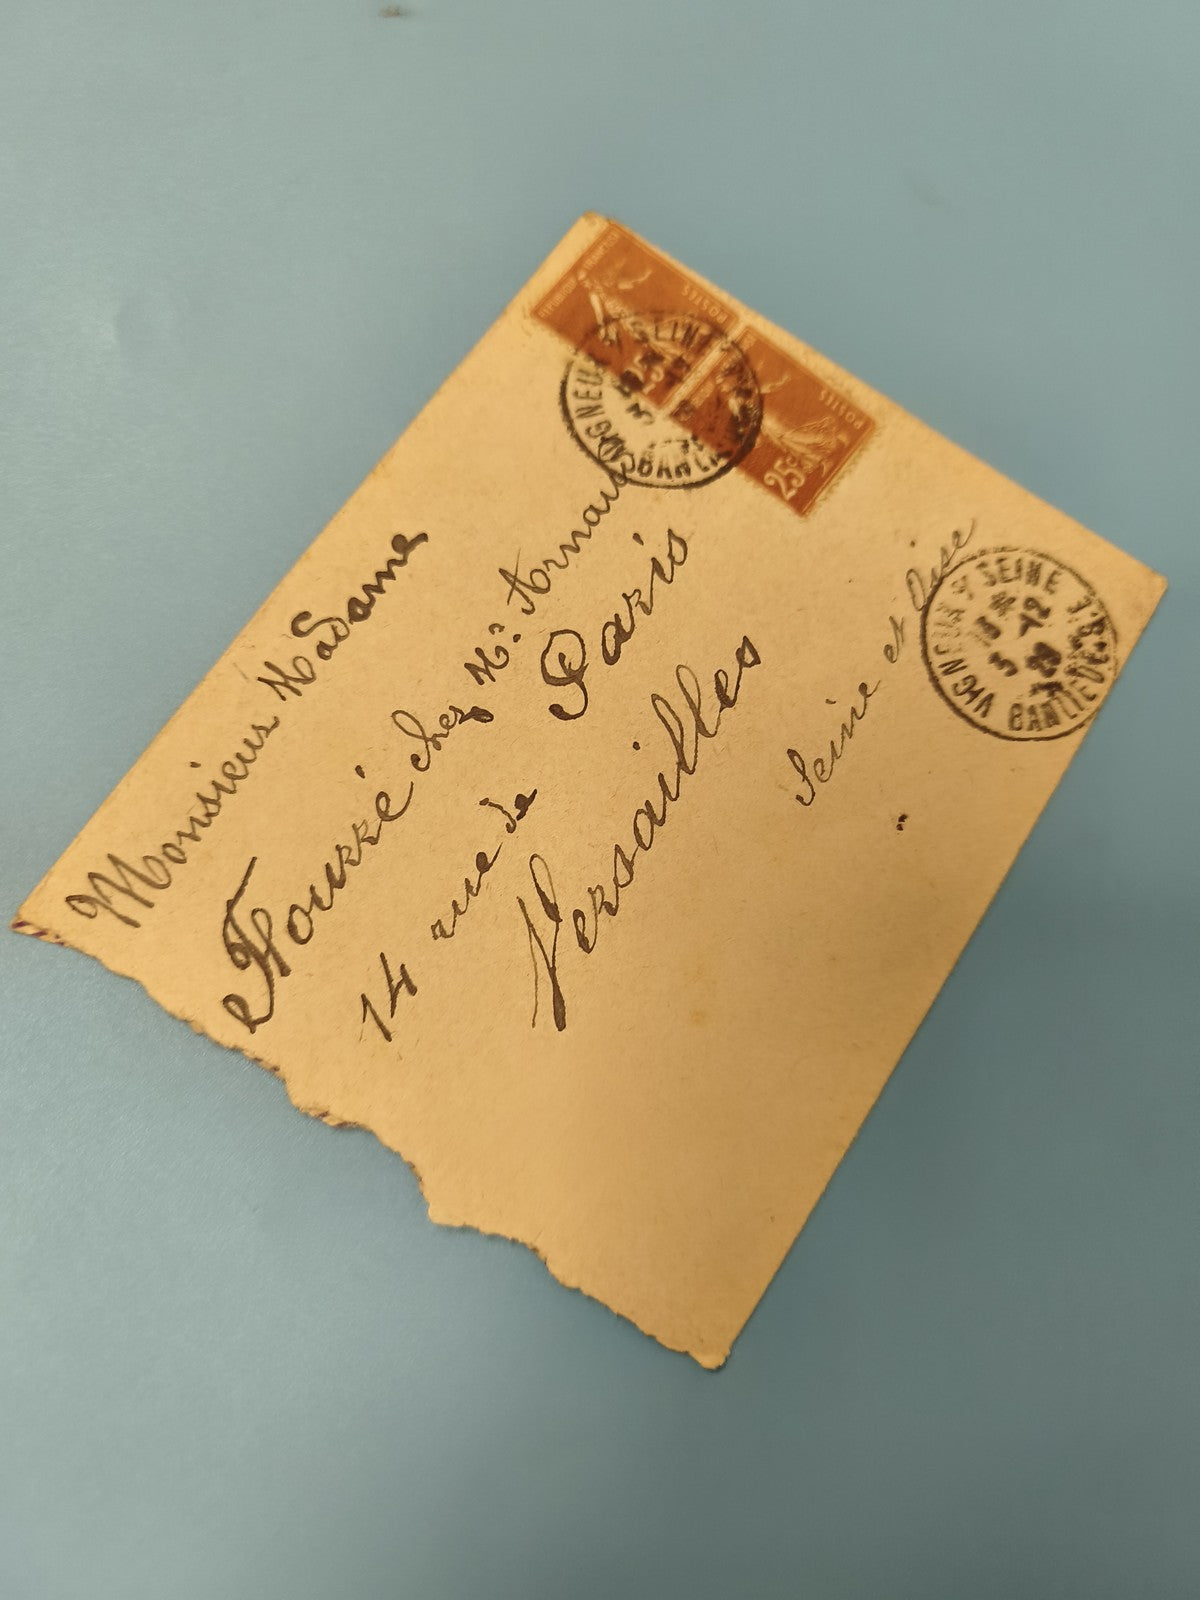 REPUBLIQUE FRANÇAISE
POSTES
25c
POSTES
25c
VIGNEUX S/ SEINE
BANLIEUE
VIGNEUX S/ SEINE
18 H
5-12
29
BANLIEUE
Monsieur Madame
Fourré chez Mr Arnaud
14 rue de Paris
Versailles
Seine et Oise